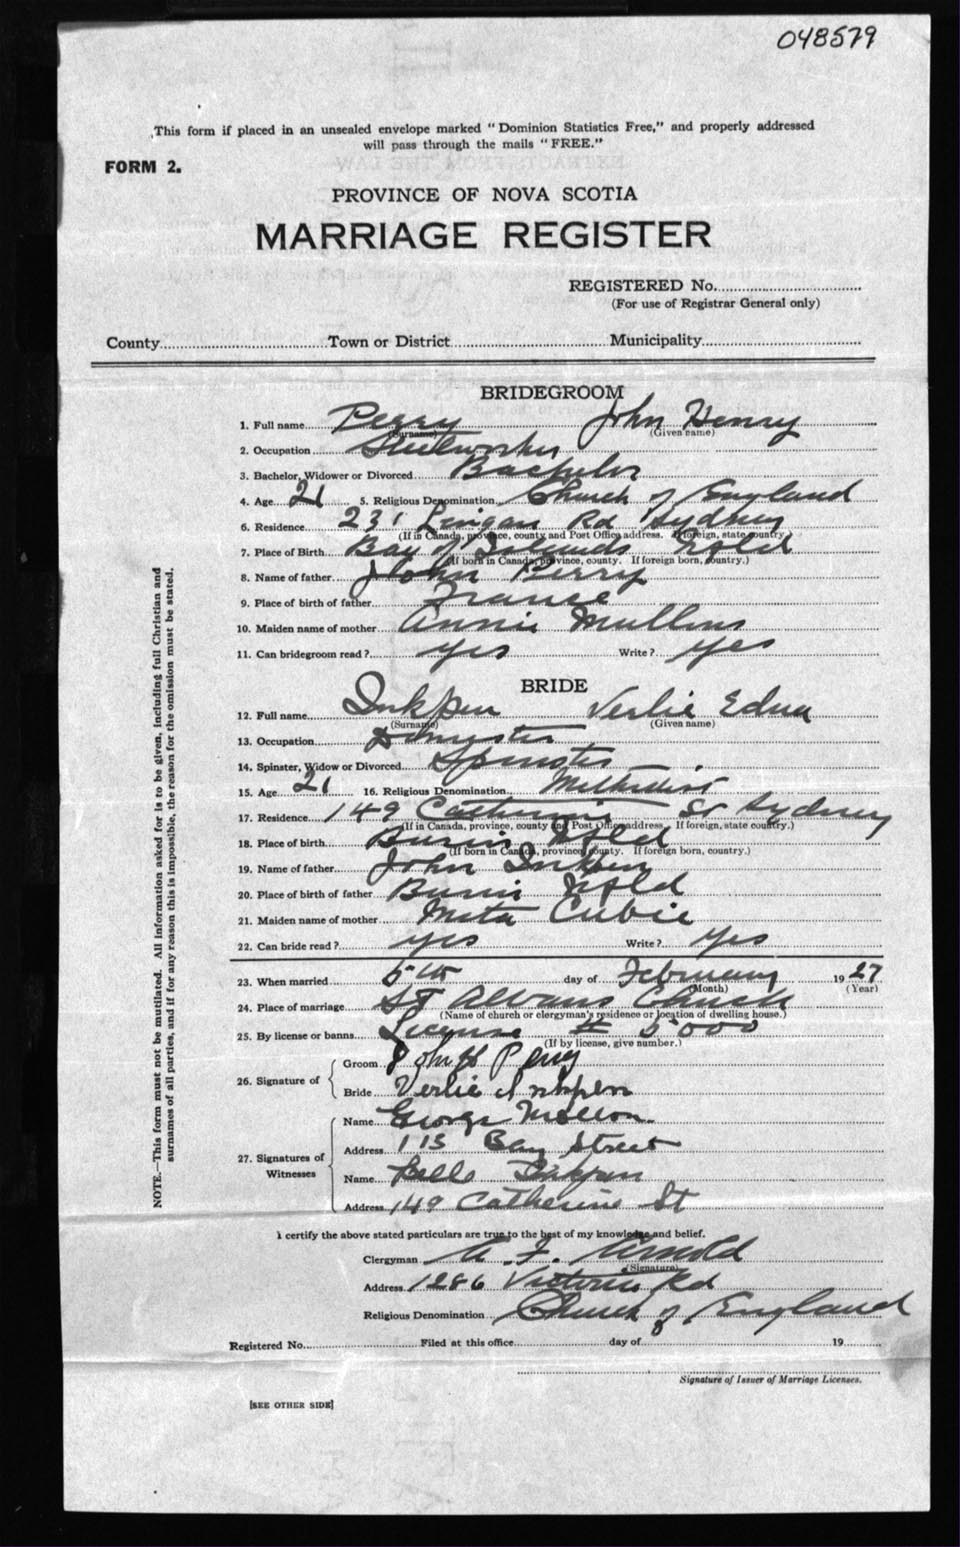 048579
This form if placed in an unsealed envelope marked "Dominion Statistics Free," and properly addressed
will pass through the mails "FREE."
FORM 2.
PROVINCE OF NOVA SCOTIA
MARRIAGE REGISTER
REGISTERED No.
(For use of Registrar General only)
County Town or District Municipality
BRIDEGROOM
1. Full name Perry John Henry
(Surname) (Given name)
2. Occupation Steelworker
3. Bachelor, Widower or Divorced Bachelor
4. Age 21 5. Religious Denomination Church of England
6. Residence 231 Lingan Rd Sydney
(If in Canada, province, county and Post Office address. If foreign, state country.)
7. Place of Birth Bay of Islands Nfld
(If born in Canada, province, county. If foreign born, country.)
8. Name of father John Perry
9. Place of birth of father France
10. Maiden name of mother Annie Mullins
11. Can bridegroom read? yes Write? yes
BRIDE
12. Full name Inkpen Verlie Edna
(Surname) (Given name)
13. Occupation Domestic
14. Spinster, Widow or Divorced Spinster
15. Age 21 16. Religious Denomination Methodist
17. Residence 149 Catherine St Sydney
(If in Canada, province, county and Post Office address. If foreign, state country.)
18. Place of birth Burin Nfld
(If born in Canada, province, county. If foreign born, country.)
19. Name of father John Inkpen
20. Place of birth of father Burin Nfld
21. Maiden name of mother Meta Cubie
22. Can bride read? yes Write? yes
23. When married 5th day of February 1927
(Month) (Year)
24. Place of marriage St Albans Church
(Name of church or clergyman's residence or location of dwelling house.)
25. By license or banns License # 5000
(If by license, give number.)
26. Signature of
Groom John H Perry
Bride Verlie Inkpen
27. Signatures of Witnesses
Name George
Address 115 Bay Street
Name Belle Inkpen
Address 149 Catherine St
I certify the above stated particulars are true to the best of my knowledge and belief.
Clergyman A. F. Arnold
(Signature)
Address 1286 Victoria Rd
Religious Denomination Church of England
Registered No. Filed at this office day of 19
Signature of Issuer of Marriage Licenses.
[SEE OTHER SIDE]
NOTE.—This form must not be mutilated. All information asked for is to be given, including full Christian and
surnames of all parties, and if for any reason this is impossible, the reason for the omission must be stated.